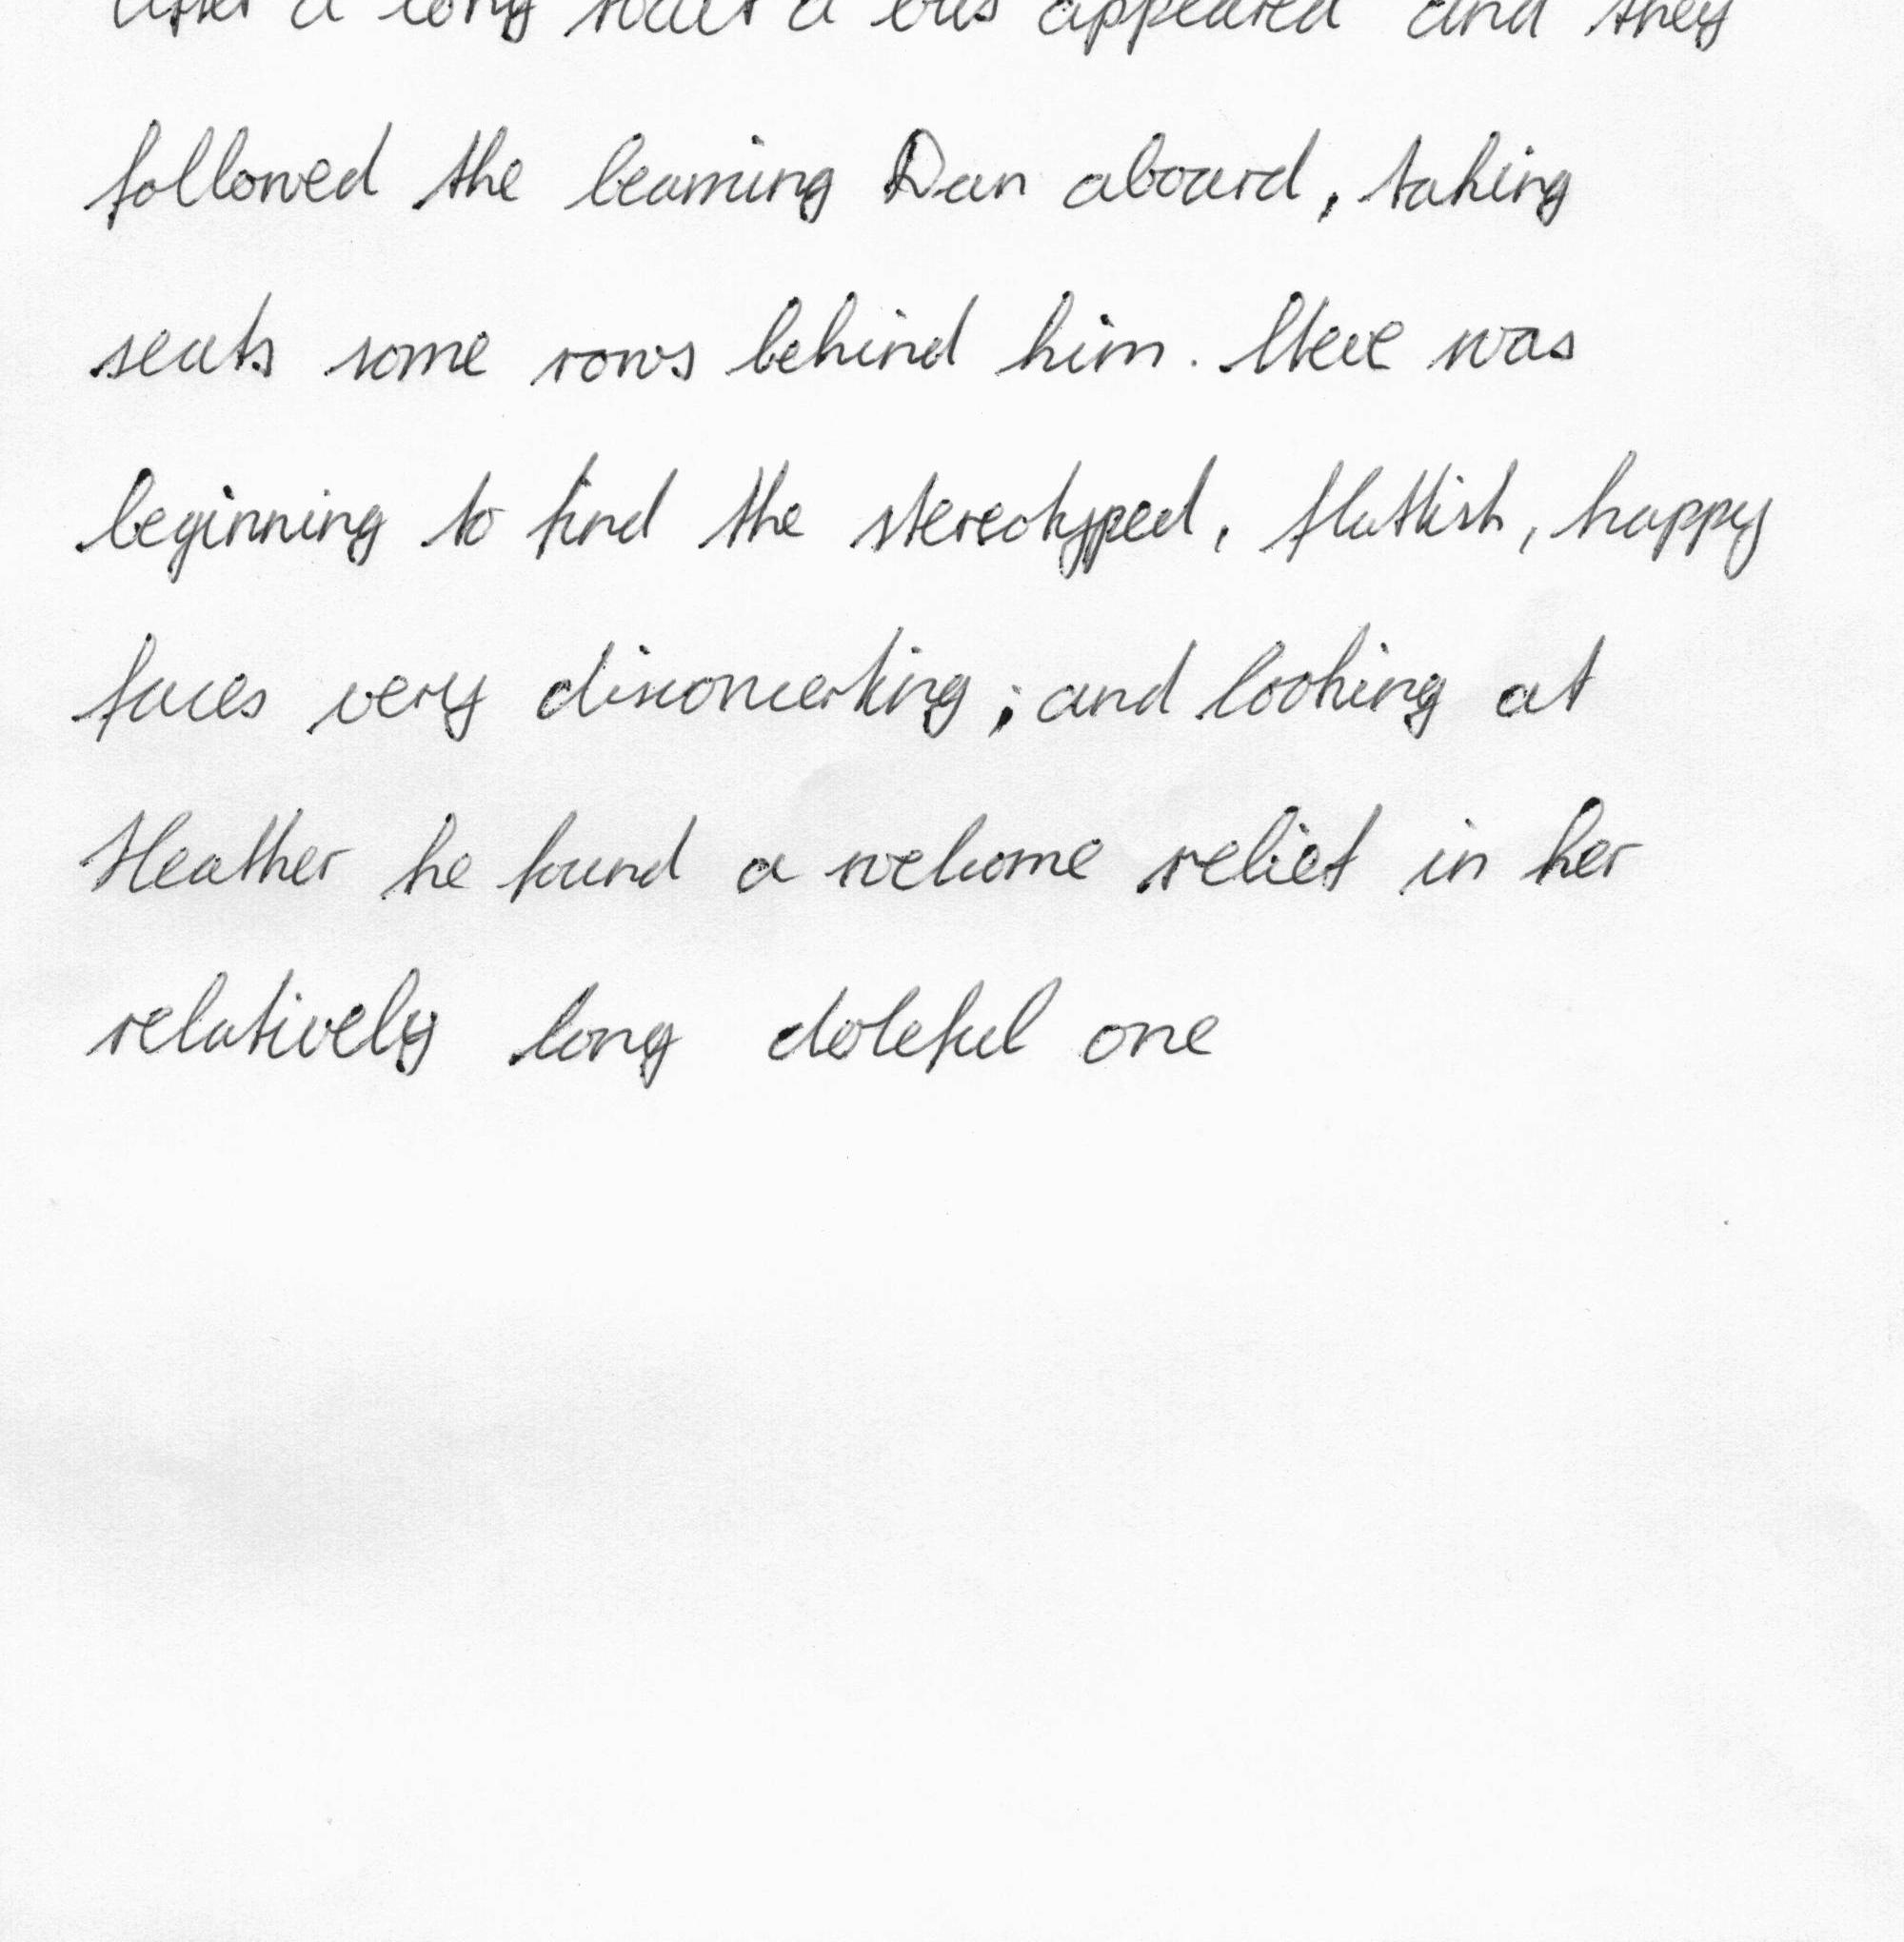 after a long wait a bus appeared and they
followed the beaming Dan aboard, taking
seats some rows behind him. Steve was
beginning to find the stereotyped, flattish, happy
faces very disconcerting; and looking at
Heather he found a welcome relief in her
relatively long doleful one